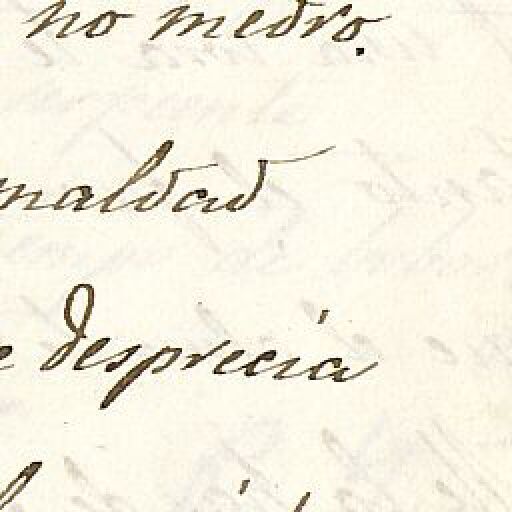 no medro.
maldad
desprecia